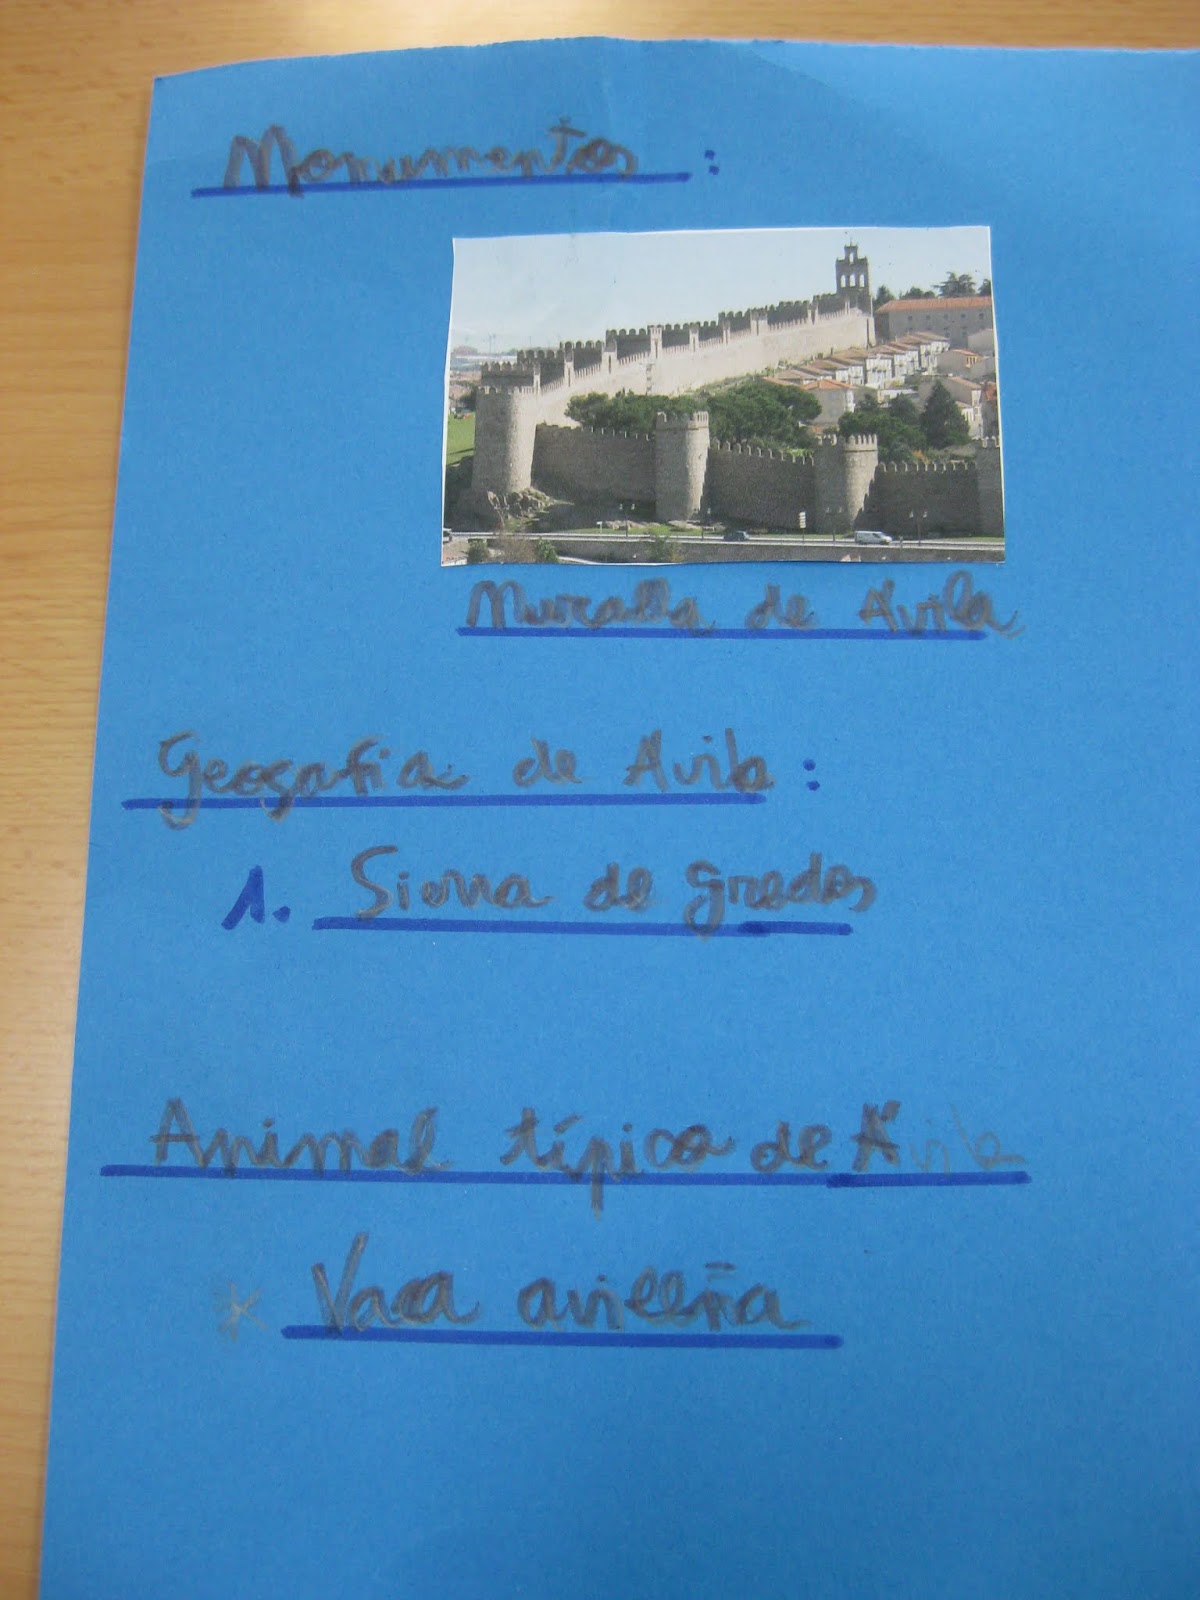 Monumentos :
Muralla de Ávila
Geografia de Avila :
1. Sierra de gredos
Animal típico de Ávila
* Vaca avileña